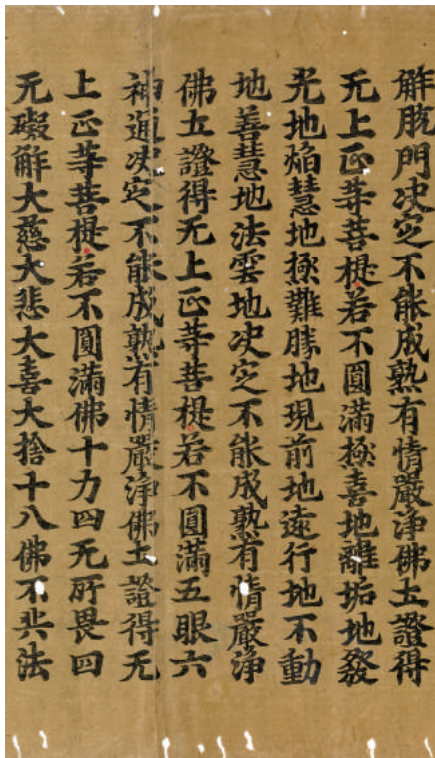 解脫門决定不能成熟有情嚴淨佛土證得
无上正等菩提若不圓滿極喜地離垢地發
光地焰慧地極難勝地現前地遠行地不動
地善慧地法雲地决定不能成熟有情嚴淨
佛土證得无上正等菩提若不圓滿五眼六
神通决定不能成熟有情嚴淨佛土證得无
上正等菩提若不圓滿佛十力四无所畏四
无礙解大慈大悲大喜大捨十八佛不共法